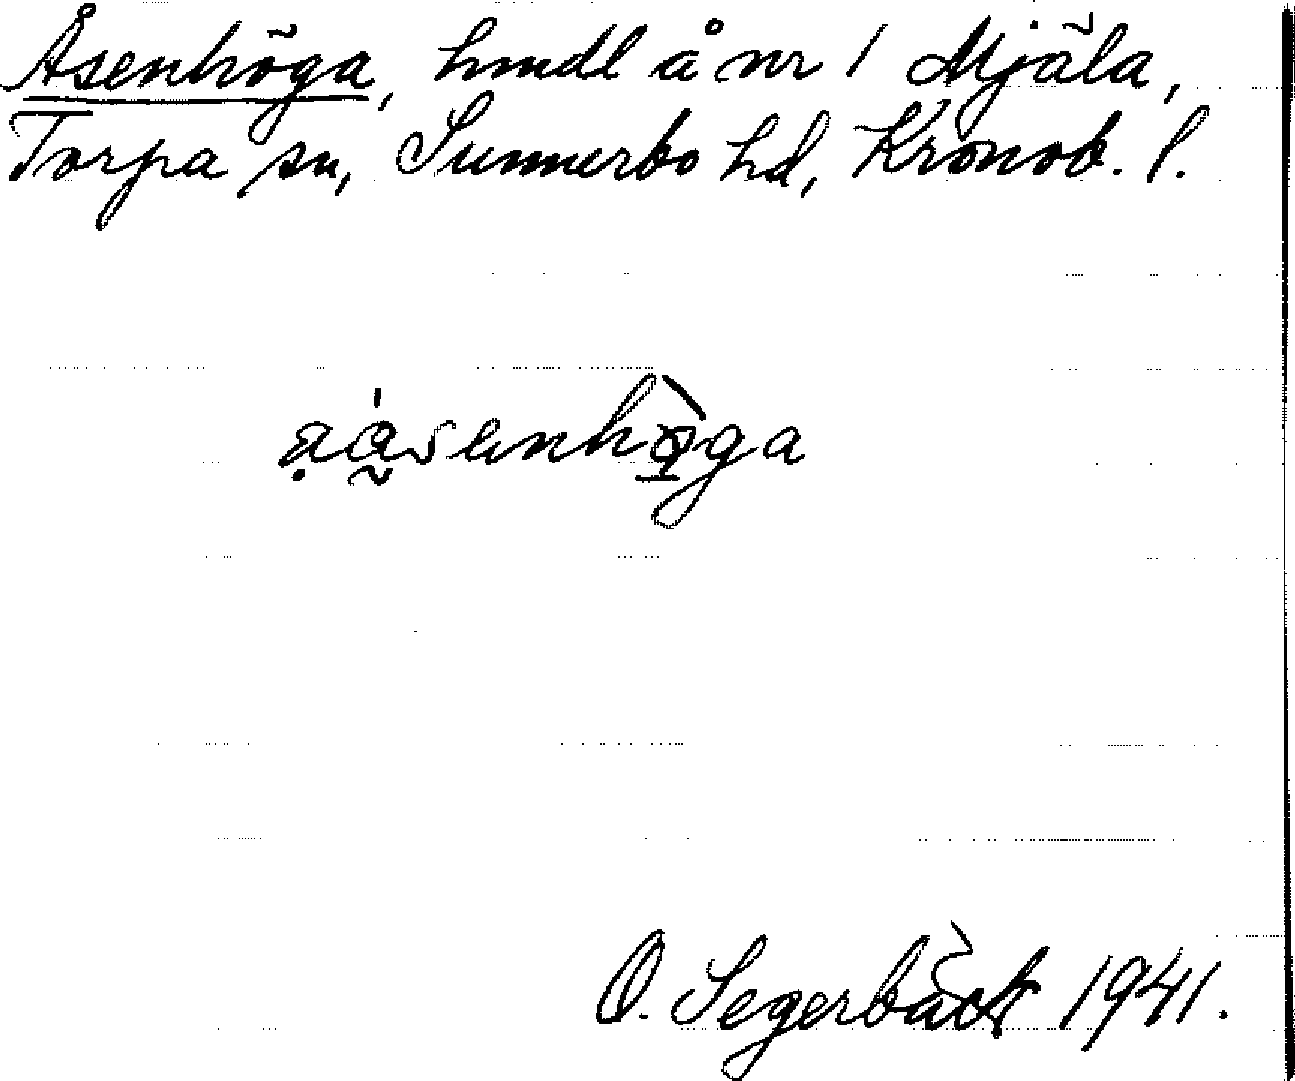 Åsenhöga, hmdl å nr 1 Mjäla,
Torpa sn, Sunnerbo hd, Kronob. l.
ạá̰senhò̱ga
O. Segerbäck 1941.